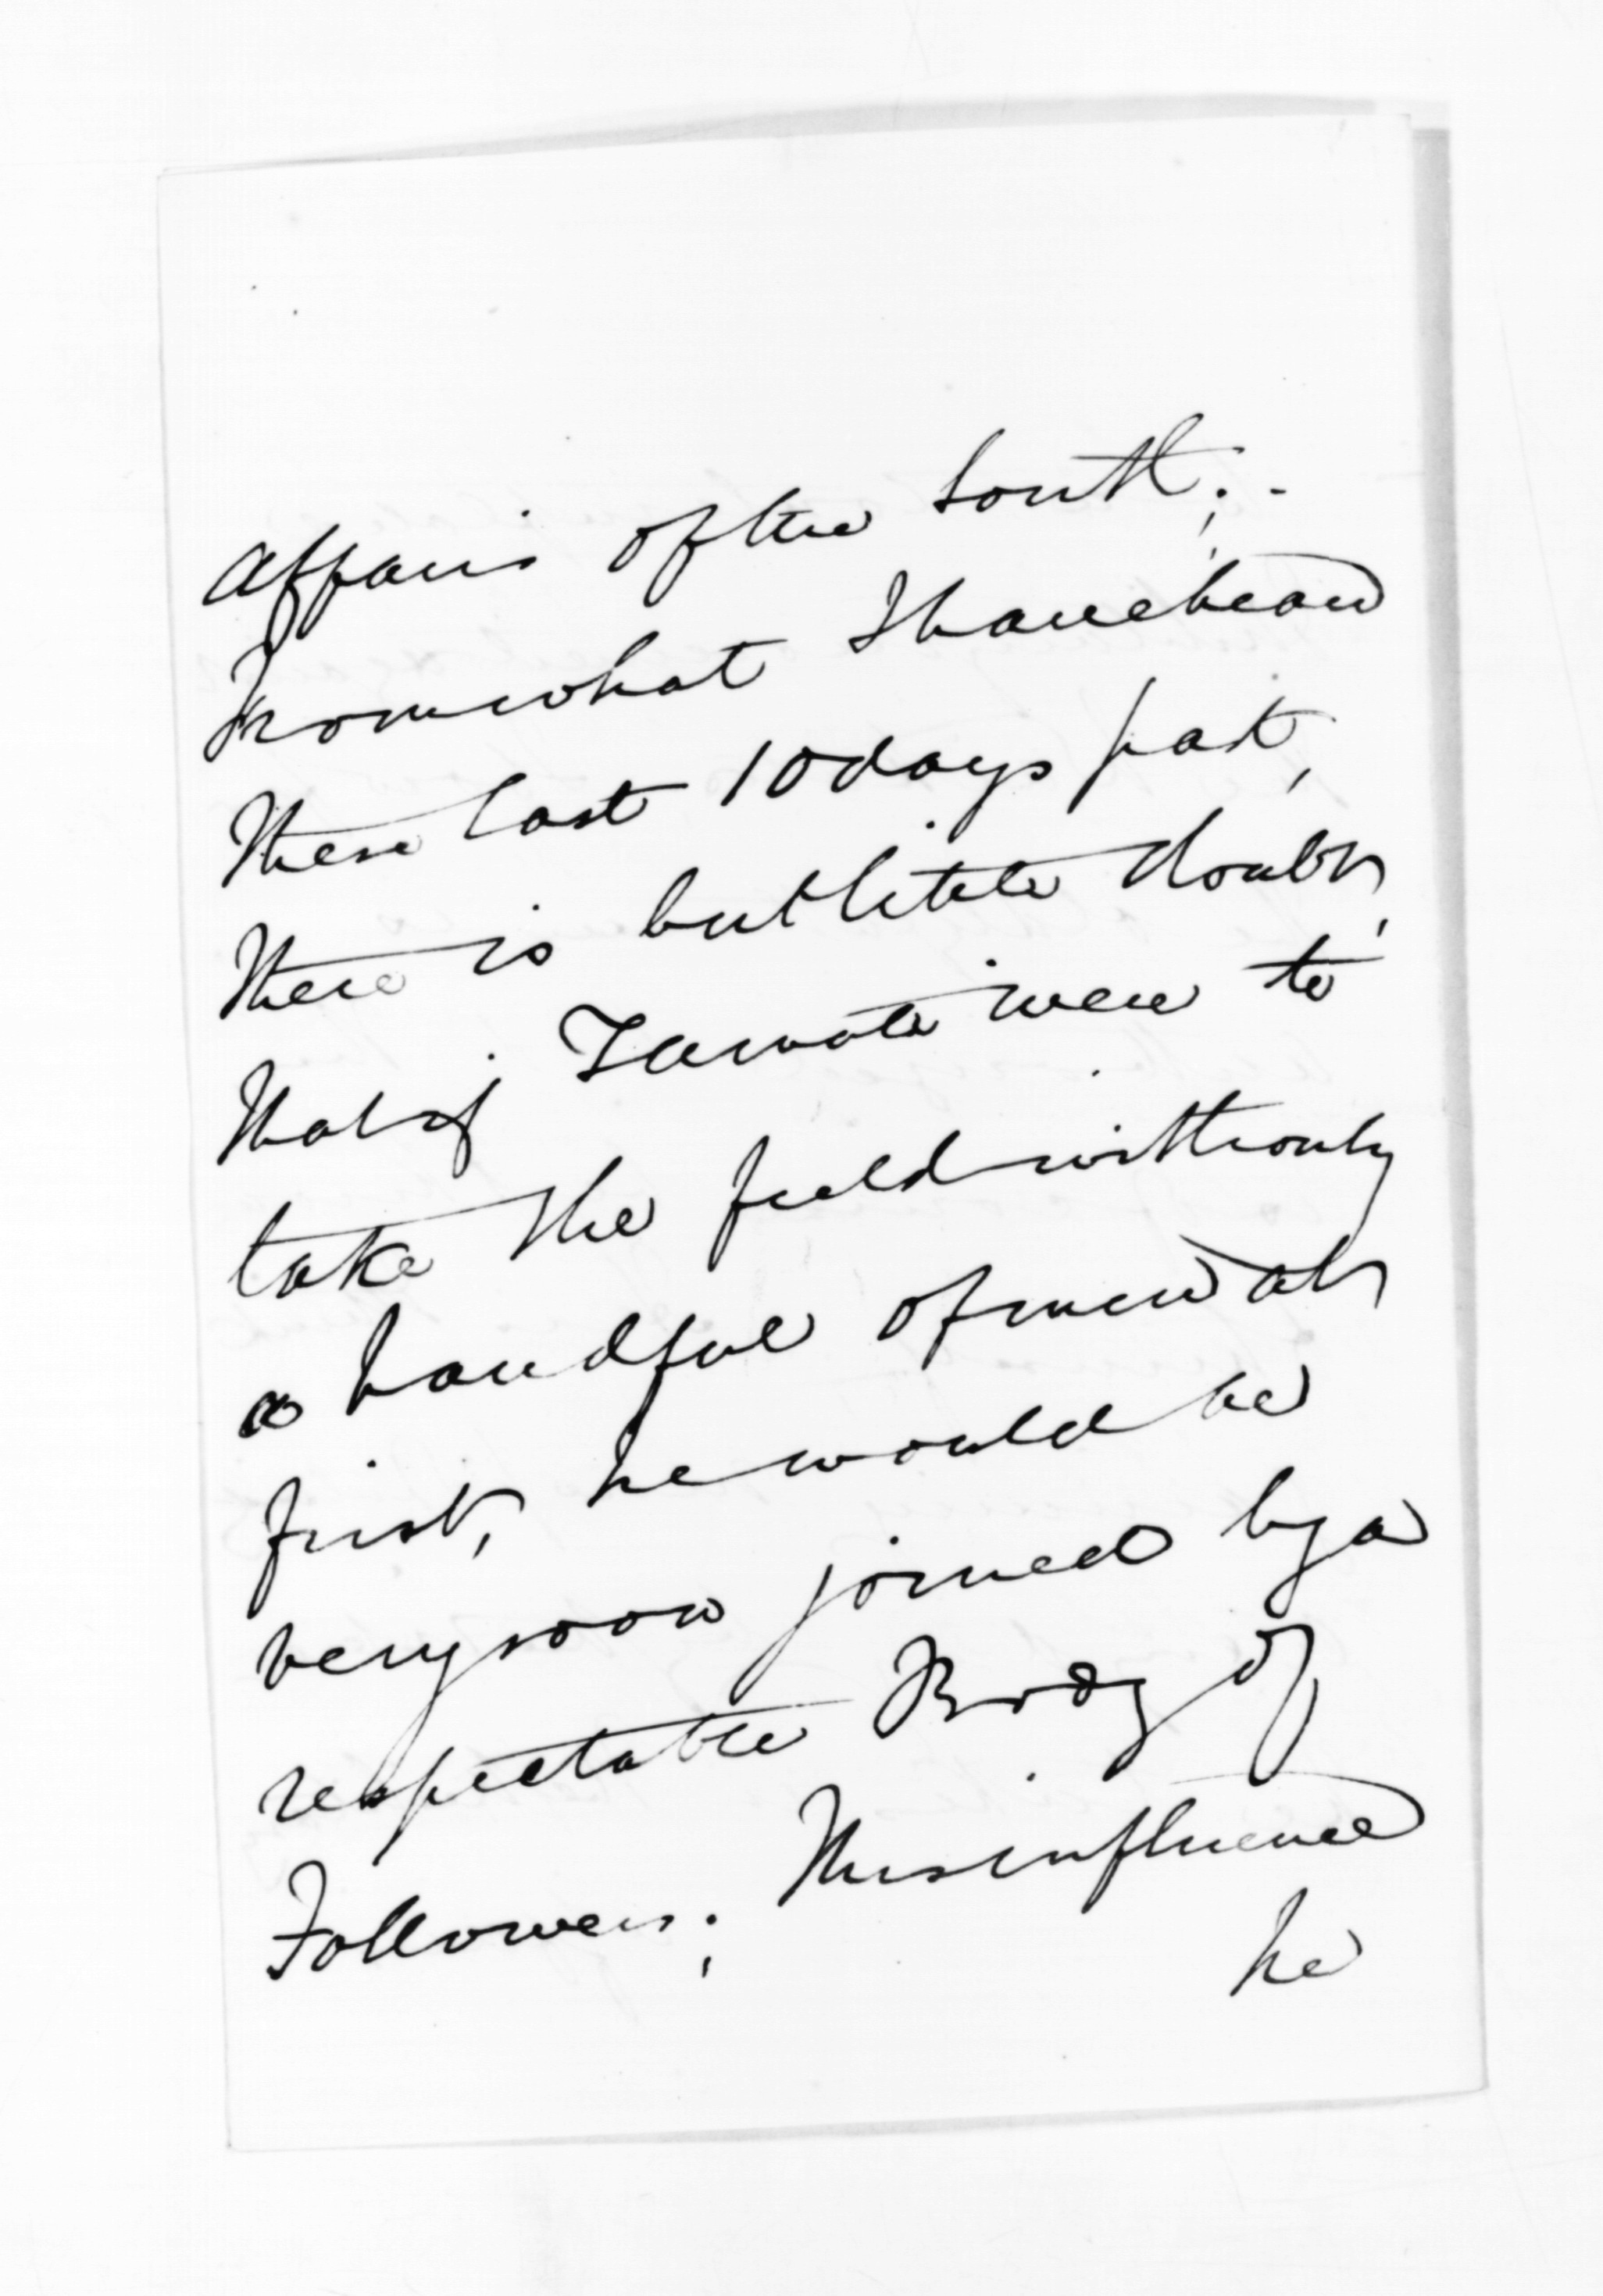 affairs of the South;-
From what I have heard
these last 10 days past,
there is but little doubt,
that if Tamati were to
take the field with only
a handful of men at
first, he would be
very soon joined by a
respectable Body of
Followers; This influence
he